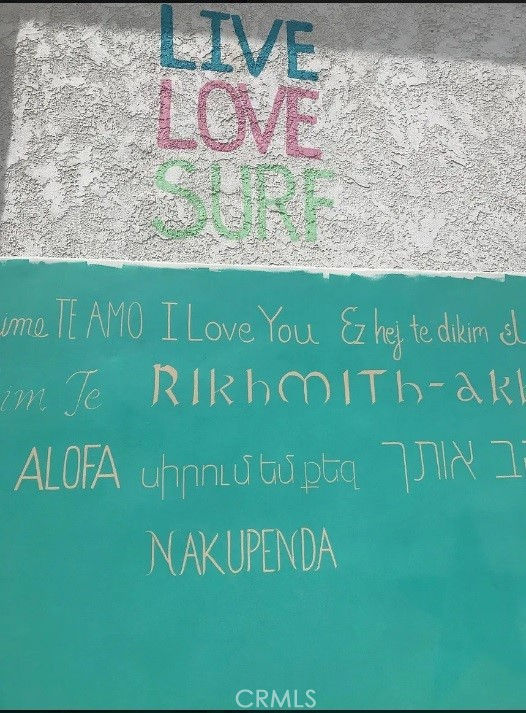 LIVE
LOVE
SURF
TE AMO I Love You Ez hej te dikim
im Te RIKhMITh-akh
ALOFA սիրում եմ քեզ אותך
NAKUPENDA
CRMLS